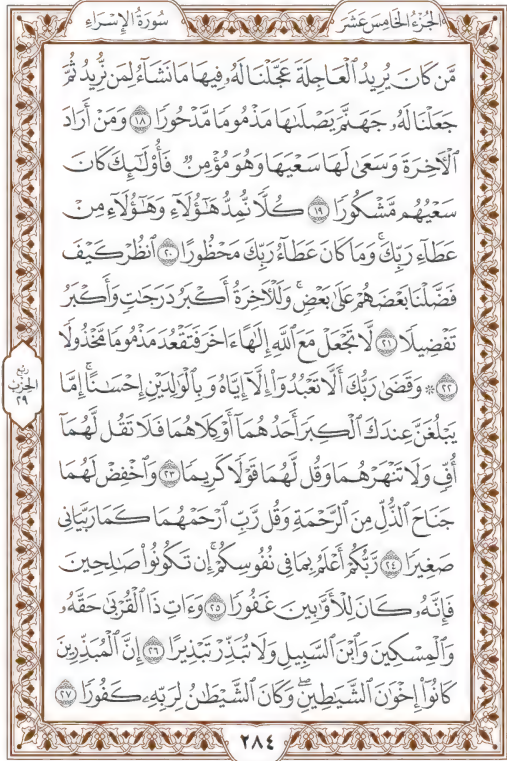 الجُزْءُ الخَامِسَ عَشَرَ
سُورَةُ الإِسْرَاءِ
مَّن كَانَ يُرِيدُ ٱلْعَاجِلَةَ عَجَّلْنَا لَهُۥ فِيهَا مَا نَشَآءُ لِمَن نُّرِيدُ ثُمَّ
جَعَلْنَا لَهُۥ جَهَنَّمَ يَصْلَىٰهَا مَذْمُومًا مَّدْحُورًا ١٨ وَمَنْ أَرَادَ
ٱلْأَخِرَةَ وَسَعَىٰ لَهَا سَعْيَهَا وَهُوَ مُؤْمِنٌ فَأُو۟لَٰٓئِكَ كَانَ
سَعْيُهُم مَّشْكُورًا ١٩ كُلًّا نُّمِدُّ هَٰٓؤُلَآءِ وَهَٰٓؤُلَآءِ مِنْ
عَطَآءِ رَبِّكَ ۚ وَمَا كَانَ عَطَآءُ رَبِّكَ مَحْظُورًا ٢٠ ٱنظُرْ كَيْفَ
فَضَّلْنَا بَعْضَهُمْ عَلَىٰ بَعْضٍ ۚ وَلَلْأَخِرَةُ أَكْبَرُ دَرَجَٰتٍ وَأَكْبَرُ
تَفْضِيلًا ٢١ لَّا تَجْعَلْ مَعَ ٱللَّهِ إِلَٰهًا ءَاخَرَ فَتَقْعُدَ مَذْمُومًا مَّخْذُولًا
٢٢ ۞ وَقَضَىٰ رَبُّكَ أَلَّا تَعْبُدُوٓا۟ إِلَّآ إِيَّاهُ وَبِٱلْوَٰلِدَيْنِ إِحْسَٰنًا ۚ إِمَّا
يَبْلُغَنَّ عِندَكَ ٱلْكِبَرَ أَحَدُهُمَآ أَوْ كِلَاهُمَا فَلَا تَقُل لَّهُمَآ
أُفٍّ وَلَا تَنْهَرْهُمَا وَقُل لَّهُمَا قَوْلًا كَرِيمًا ٢٣ وَٱخْفِضْ لَهُمَا
جَنَاحَ ٱلذُّلِّ مِنَ ٱلرَّحْمَةِ وَقُل رَّبِّ ٱرْحَمْهُمَا كَمَا رَبَّيَانِى
صَغِيرًا ٢٤ رَّبُّكُمْ أَعْلَمُ بِمَا فِى نُفُوسِكُمْ ۚ إِن تَكُونُوا۟ صَٰلِحِينَ
فَإِنَّهُۥ كَانَ لِلْأَوَّٰبِينَ غَفُورًا ٢٥ وَءَاتِ ذَا ٱلْقُرْبَىٰ حَقَّهُۥ
وَٱلْمِسْكِينَ وَٱبْنَ ٱلسَّبِيلِ وَلَا تُبَذِّرْ تَبْذِيرًا ٢٦ إِنَّ ٱلْمُبَذِّرِينَ
كَانُوٓا۟ إِخْوَٰنَ ٱلشَّيَٰطِينِ ۖ وَكَانَ ٱلشَّيْطَٰنُ لِرَبِّهِۦ كَفُورًا ٢٧
ربع
الحزب
٢٩
٢٨٤